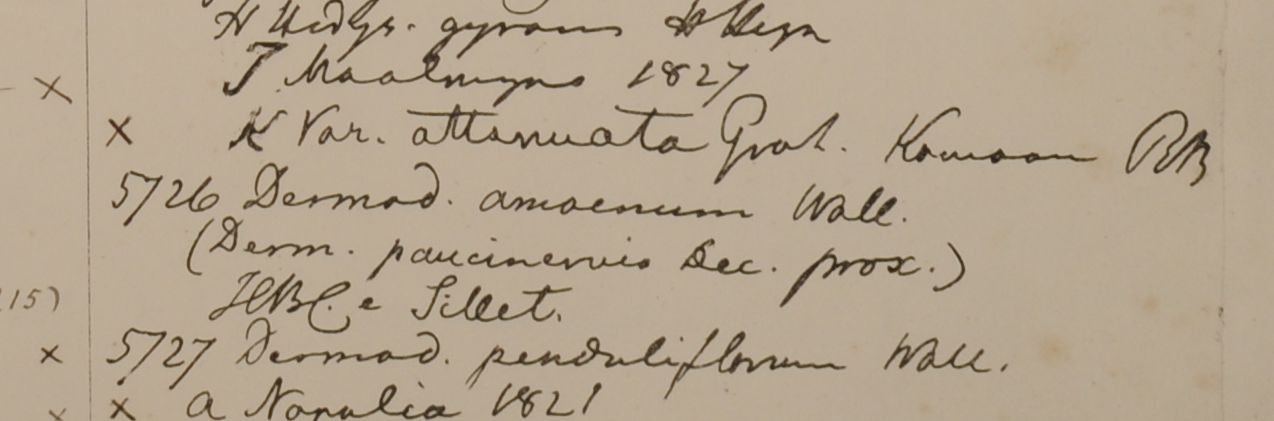 H Hedys. gyrans H Heyn
J Moalmyne 1827
× K Var. attenuata Grah. Kamaon RB
5726 Desmod. amoenum Wall.
(Desm. paucinervis Dec. prox.)
HBC. e Sillet.
15)
× 5727 Desmod. penduliflorum Wall.
× × a Napalia 1821